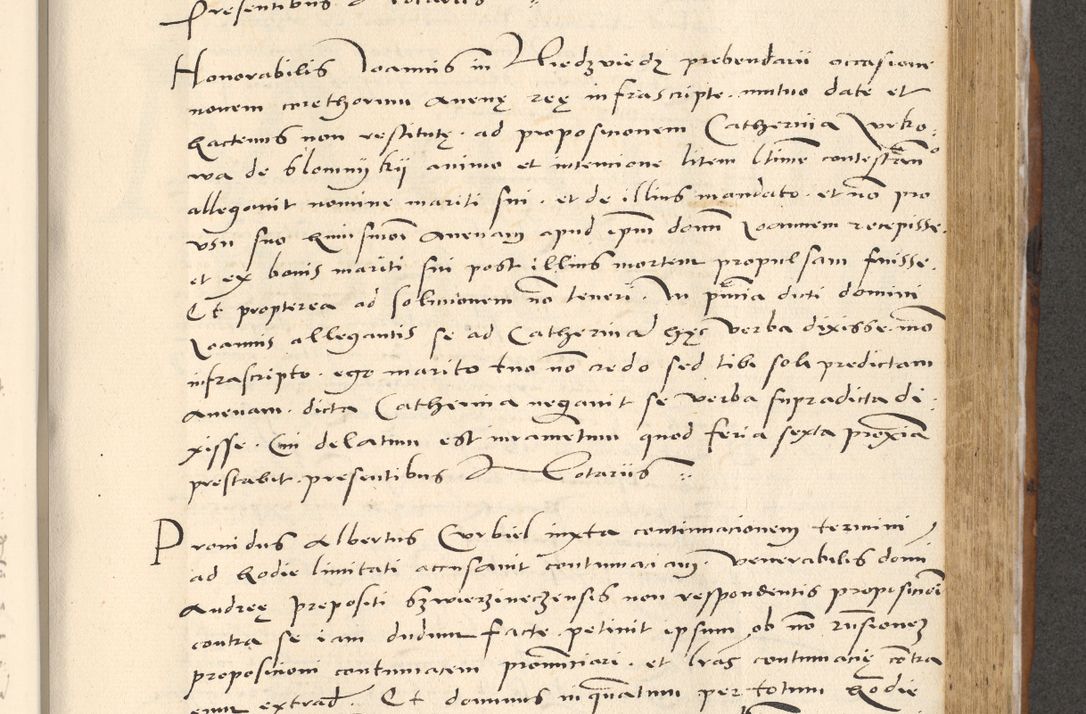 Presentibus
Honorabilis Joannis in Niedzviedz prebendarii occasione
novem corethorum avenę reę infrascripte mutuo date et
hactenus non restitutę . ad propositionem Catherina Vrko-
wa de Slomnykij animo et intencione litem ltime contestan
allegavit nomine mariti sui . et de illius mandato . et nō pro
usu suo huiusmoi avenam apud ipm domn Joannem recepisse .
et ex bonis mariti sui post illius mortem propulsam fuisse .
Et propterea ad solucionem nō teneri . In pntia dicti domini
Joannis allegantis se ad Catherinā hęc verba dixisse . mō
infrascripto . ego marito tuo nō credo sed tibi soli predictam
avenam . dicta Catherina negavit se verba supradicta di-
xisse . Cui delatum est iurametum quod feria sexta proxīa
prestabit . presentibus Notariis
Providus Albertus Corbiel iuxta continuacionem termini
ad hodie limitati accusavit contumaciam . venerabilis domi
Andreę prepositi Szwierzineczensis non respondentis propositioi
contra se iam dudum facte . petivit ipsum ob nō rnsionez
propositioni contumacem pronunciari . et lras contumacię cōtra
eum extrad . Et dominus inquantum per totum hodie